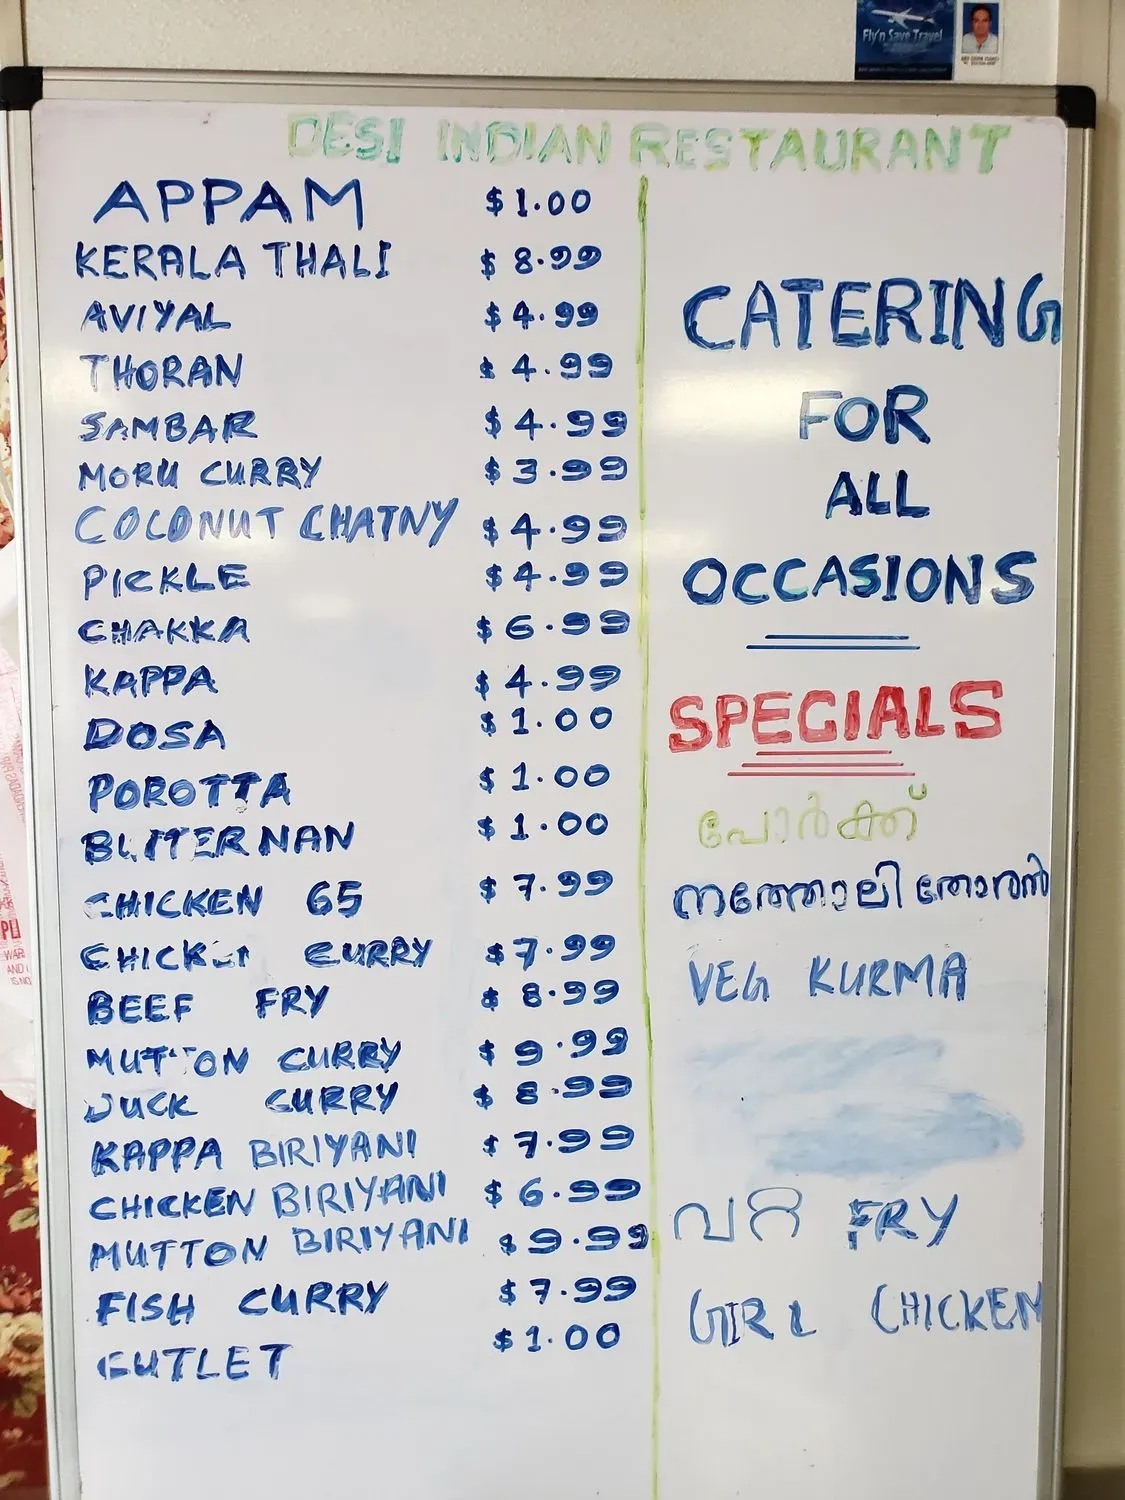 Fly'n Save Travel
DESI INDIAN RESTAURANT
APPAM $1.00
KERALA THALI $8.99
AVIYAL $4.99
THORAN $4.99
SAMBAR $4.99
MORU CURRY $3.99
COLONUT CHATNY $4.99
PICKLE $4.99
CHAKKA $6.99
KAPPA $4.99
DOSA $1.00
POROTTA $1.00
BUTTER NAN $1.00
CHICKEN 65 $7.99
CHICKEN CURRY $7.99
BEEF FRY $8.99
MUTTON CURRY $9.99
DUCK CURRY $8.99
KAPPA BIRIYANI $7.99
CHICKEN BIRIYANI $6.99
MUTTON BIRIYANI $9.99
FISH CURRY $7.99
CUTLET $1.00
CATERING
FOR
ALL
OCCASIONS
SPECIALS
പോർക്ക്
നത്തോലി തോരൻ
VEG KURMA
FRY
CHICKEN